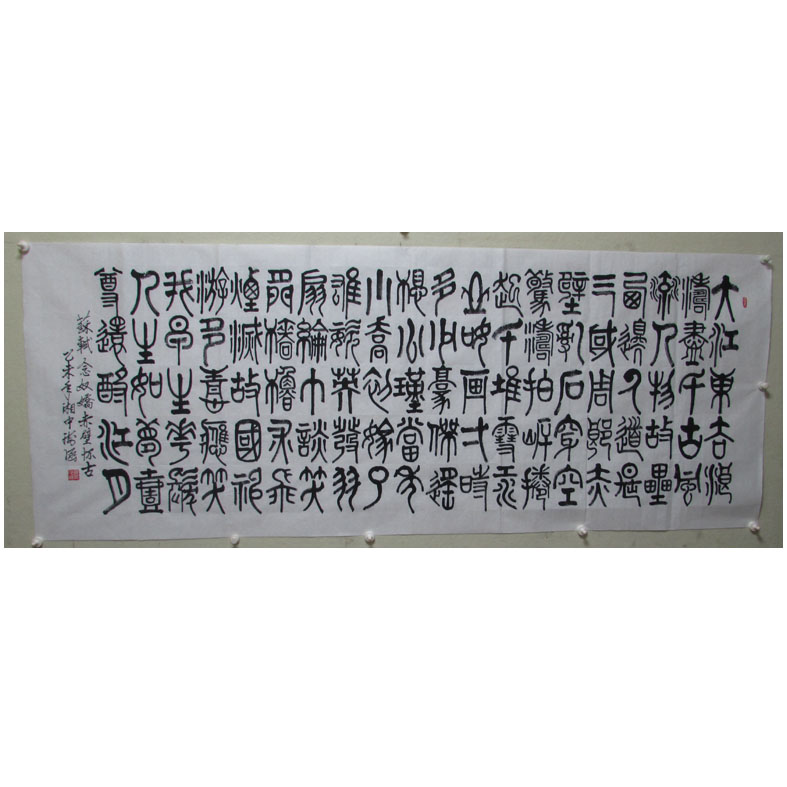 大江東去浪
濤盡千古風
流人物故壘
西邊人道是
三或周郎赤
壁亂石穿空
驚濤拍岸捲
起千堆雪江
山如画一時
多少豪傑遙
想公瑾當年
小喬初嫁了
雄姿英發羽
扇綸巾談笑
間檣櫓灰飛
煙滅故國神
游多情應笑
我早生華髮
人生如夢壹
尊還酹江月
蘇軾念奴嬌赤壁怀古
乙未冬湘中